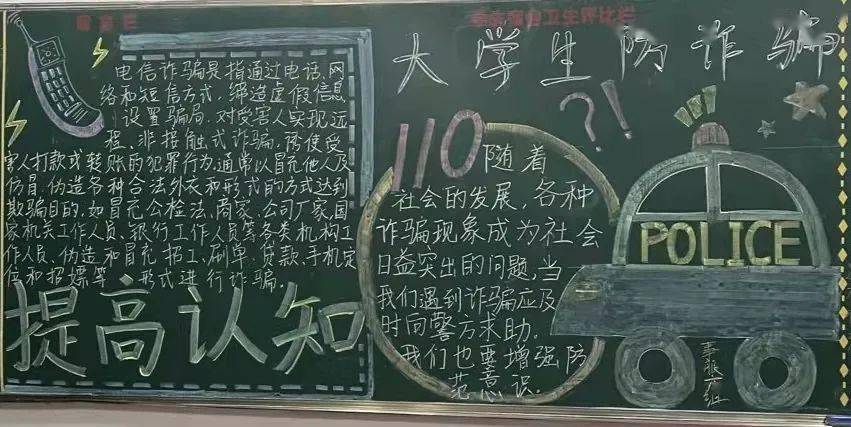 大学生防诈骗
电信诈骗是指通过电话、网
络和短信方式,编造虚假信息
设置骗局,对受害人实现远
程、非接触式诈骗,诱使受
害人打款或转账的犯罪行为,通常以冒充他人及
仿冒、伪造各种合法外衣和形式的方式达到
欺骗目的,如冒充公检法、商家、公司厂家、国
家机关工作人员、银行工作人员等各类机构工
作人员、伪造和冒充招工、刷单、贷款、手机定
位和招嫖等形式进行诈骗。
提高认知
110
?!
随着
社会的发展,各种
诈骗现象成为社会
日益突出的问题,当
我们遇到诈骗应及
时向警方求助。
我们也要增强防
范意识.
POLICE